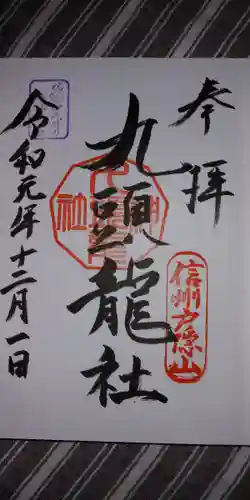 奉拝
信州戸隠山
九頭龍社
令和元年十二月一日